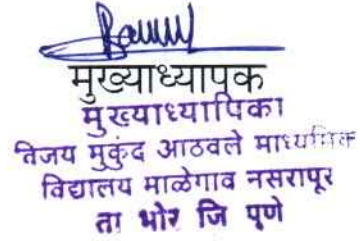 मुख्याध्यापक
मुख्याध्यापिका
विजय मुकुंद आठवले माध्यमिक
विद्यालय माळेगाव नसरापूर
ता भोर जि पुणे